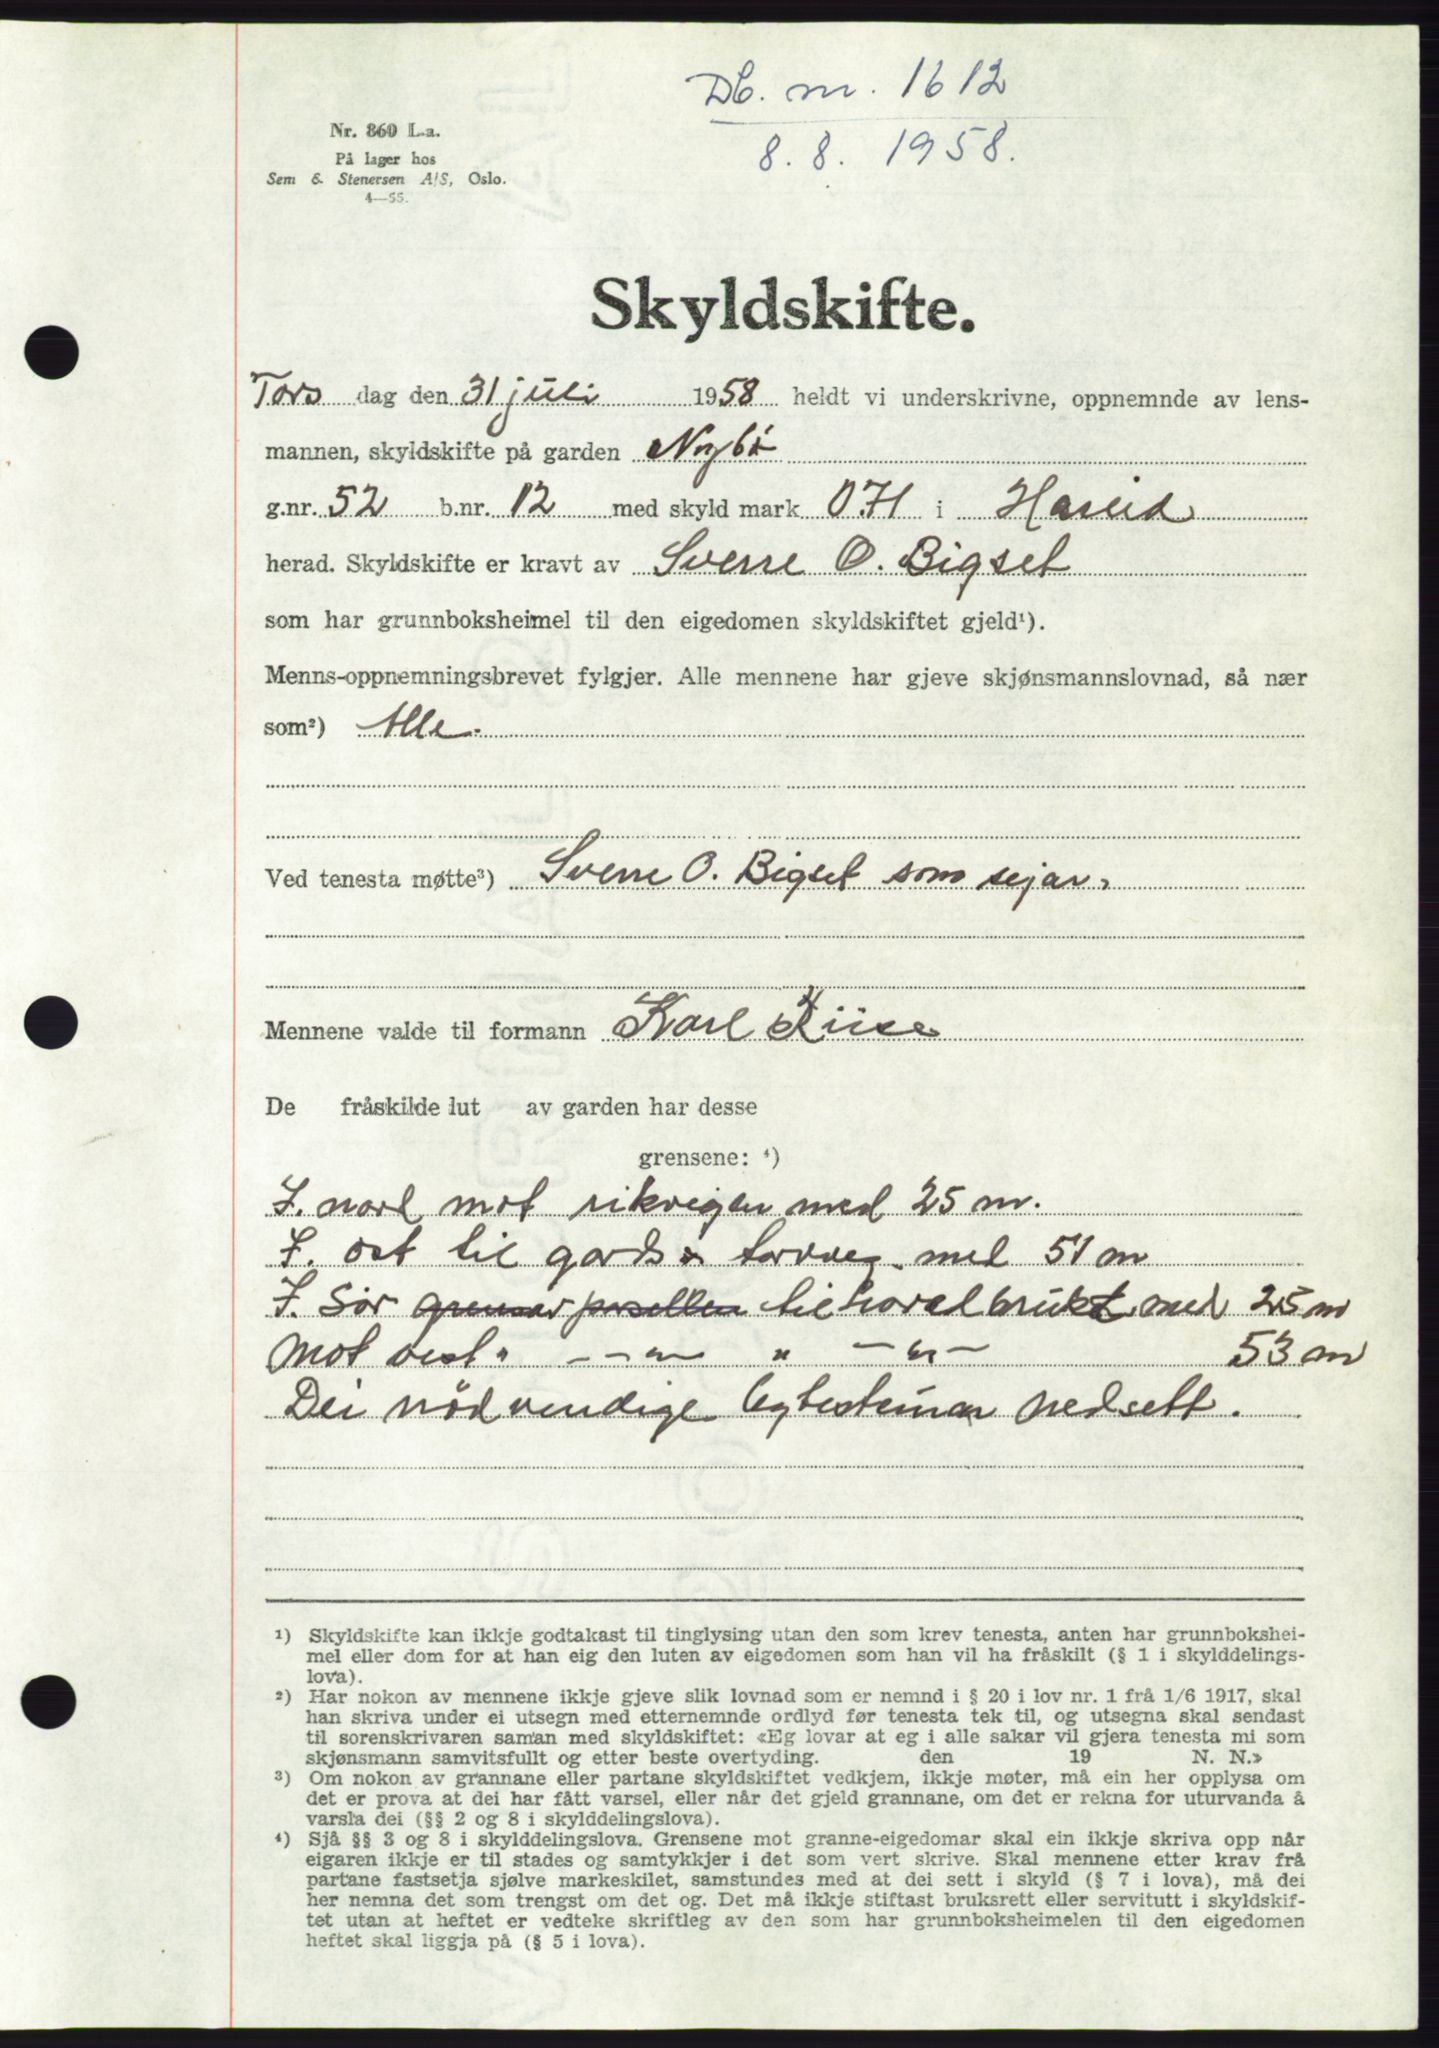 Db. nr. 1612
8. 8. 1958.
Nr. 860 L.a.
På lager hos
Sem & Stenersen A/S, Oslo.
4—55.
Skyldskifte.
Tors dag den 31 juli 1958 heldt vi underskrivne, oppnemnde av lens-
mannen, skyldskifte på garden Nybö
g.nr. 52 b.nr. 12 med skyld mark 0.71 i Hareid
herad. Skyldskifte er kravt av Sverre O. Bigset
som har grunnboksheimel til den eigedomen skyldskiftet gjeld¹).
Menns-oppnemningsbrevet fylgjer. Alle mennene har gjeve skjønsmannslovnad, så nær
som²) Alle.
Ved tenesta møtte³) Sverre O. Bigset som sejar,
Mennene valde til formann Karl Riise
De fråskilde lut av garden har desse
grensene: ⁴)
I. nord mot rikveigen med 25 m.
I. ost til gards torvveg med 51 m
I. Sör grensar parsellen til hovedbruket med 25 m
Mot vest " — — " — " — " — 53 m
Dei nödvendige bytesteinar nedsett.
¹) Skyldskifte kan ikkje godtakast til tinglysing utan den som krev tenesta, anten har grunnbokshei-
mel eller dom for at han eig den luten av eigedomen som han vil ha fråskilt (§ 1 i skylddelings-
lova).
²) Har nokon av mennene ikkje gjeve slik lovnad som er nemnd i § 20 i lov nr. 1 frå 1/6 1917, skal
han skriva under ei utsegn med etternemnde ordlyd før tenesta tek til, og utsegna skal sendast
til sorenskrivaren saman med skyldskiftet: «Eg lovar at eg i alle sakar vil gjera tenesta mi som
skjønsmann samvitsfullt og etter beste overtyding. den 19 N. N.»
³) Om nokon av grannane eller partane skyldskiftet vedkjem, ikkje møter, må ein her opplysa om
det er prova at dei har fått varsel, eller når det gjeld grannane, om det er rekna for uturvanda å
varsla dei (§§ 2 og 8 i skylddelingslova).
⁴) Sjå §§ 3 og 8 i skylddelingslova. Grensene mot granne-eigedomar skal ein ikkje skriva opp når
eigaren ikkje er til stades og samtykkjer i det som vert skrive. Skal mennene etter krav frå
partane fastsetja sjølve markeskilet, samstundes med at dei sett i skyld (§ 7 i lova), må dei
her nemna det som trengst om det og. Det må ikkje stiftast bruksrett eller servitutt i skyldskif-
tet utan at heftet er vedteke skriftleg av den som har grunnboksheimelen til den eigedomen
heftet skal liggja på (§ 5 i lova).